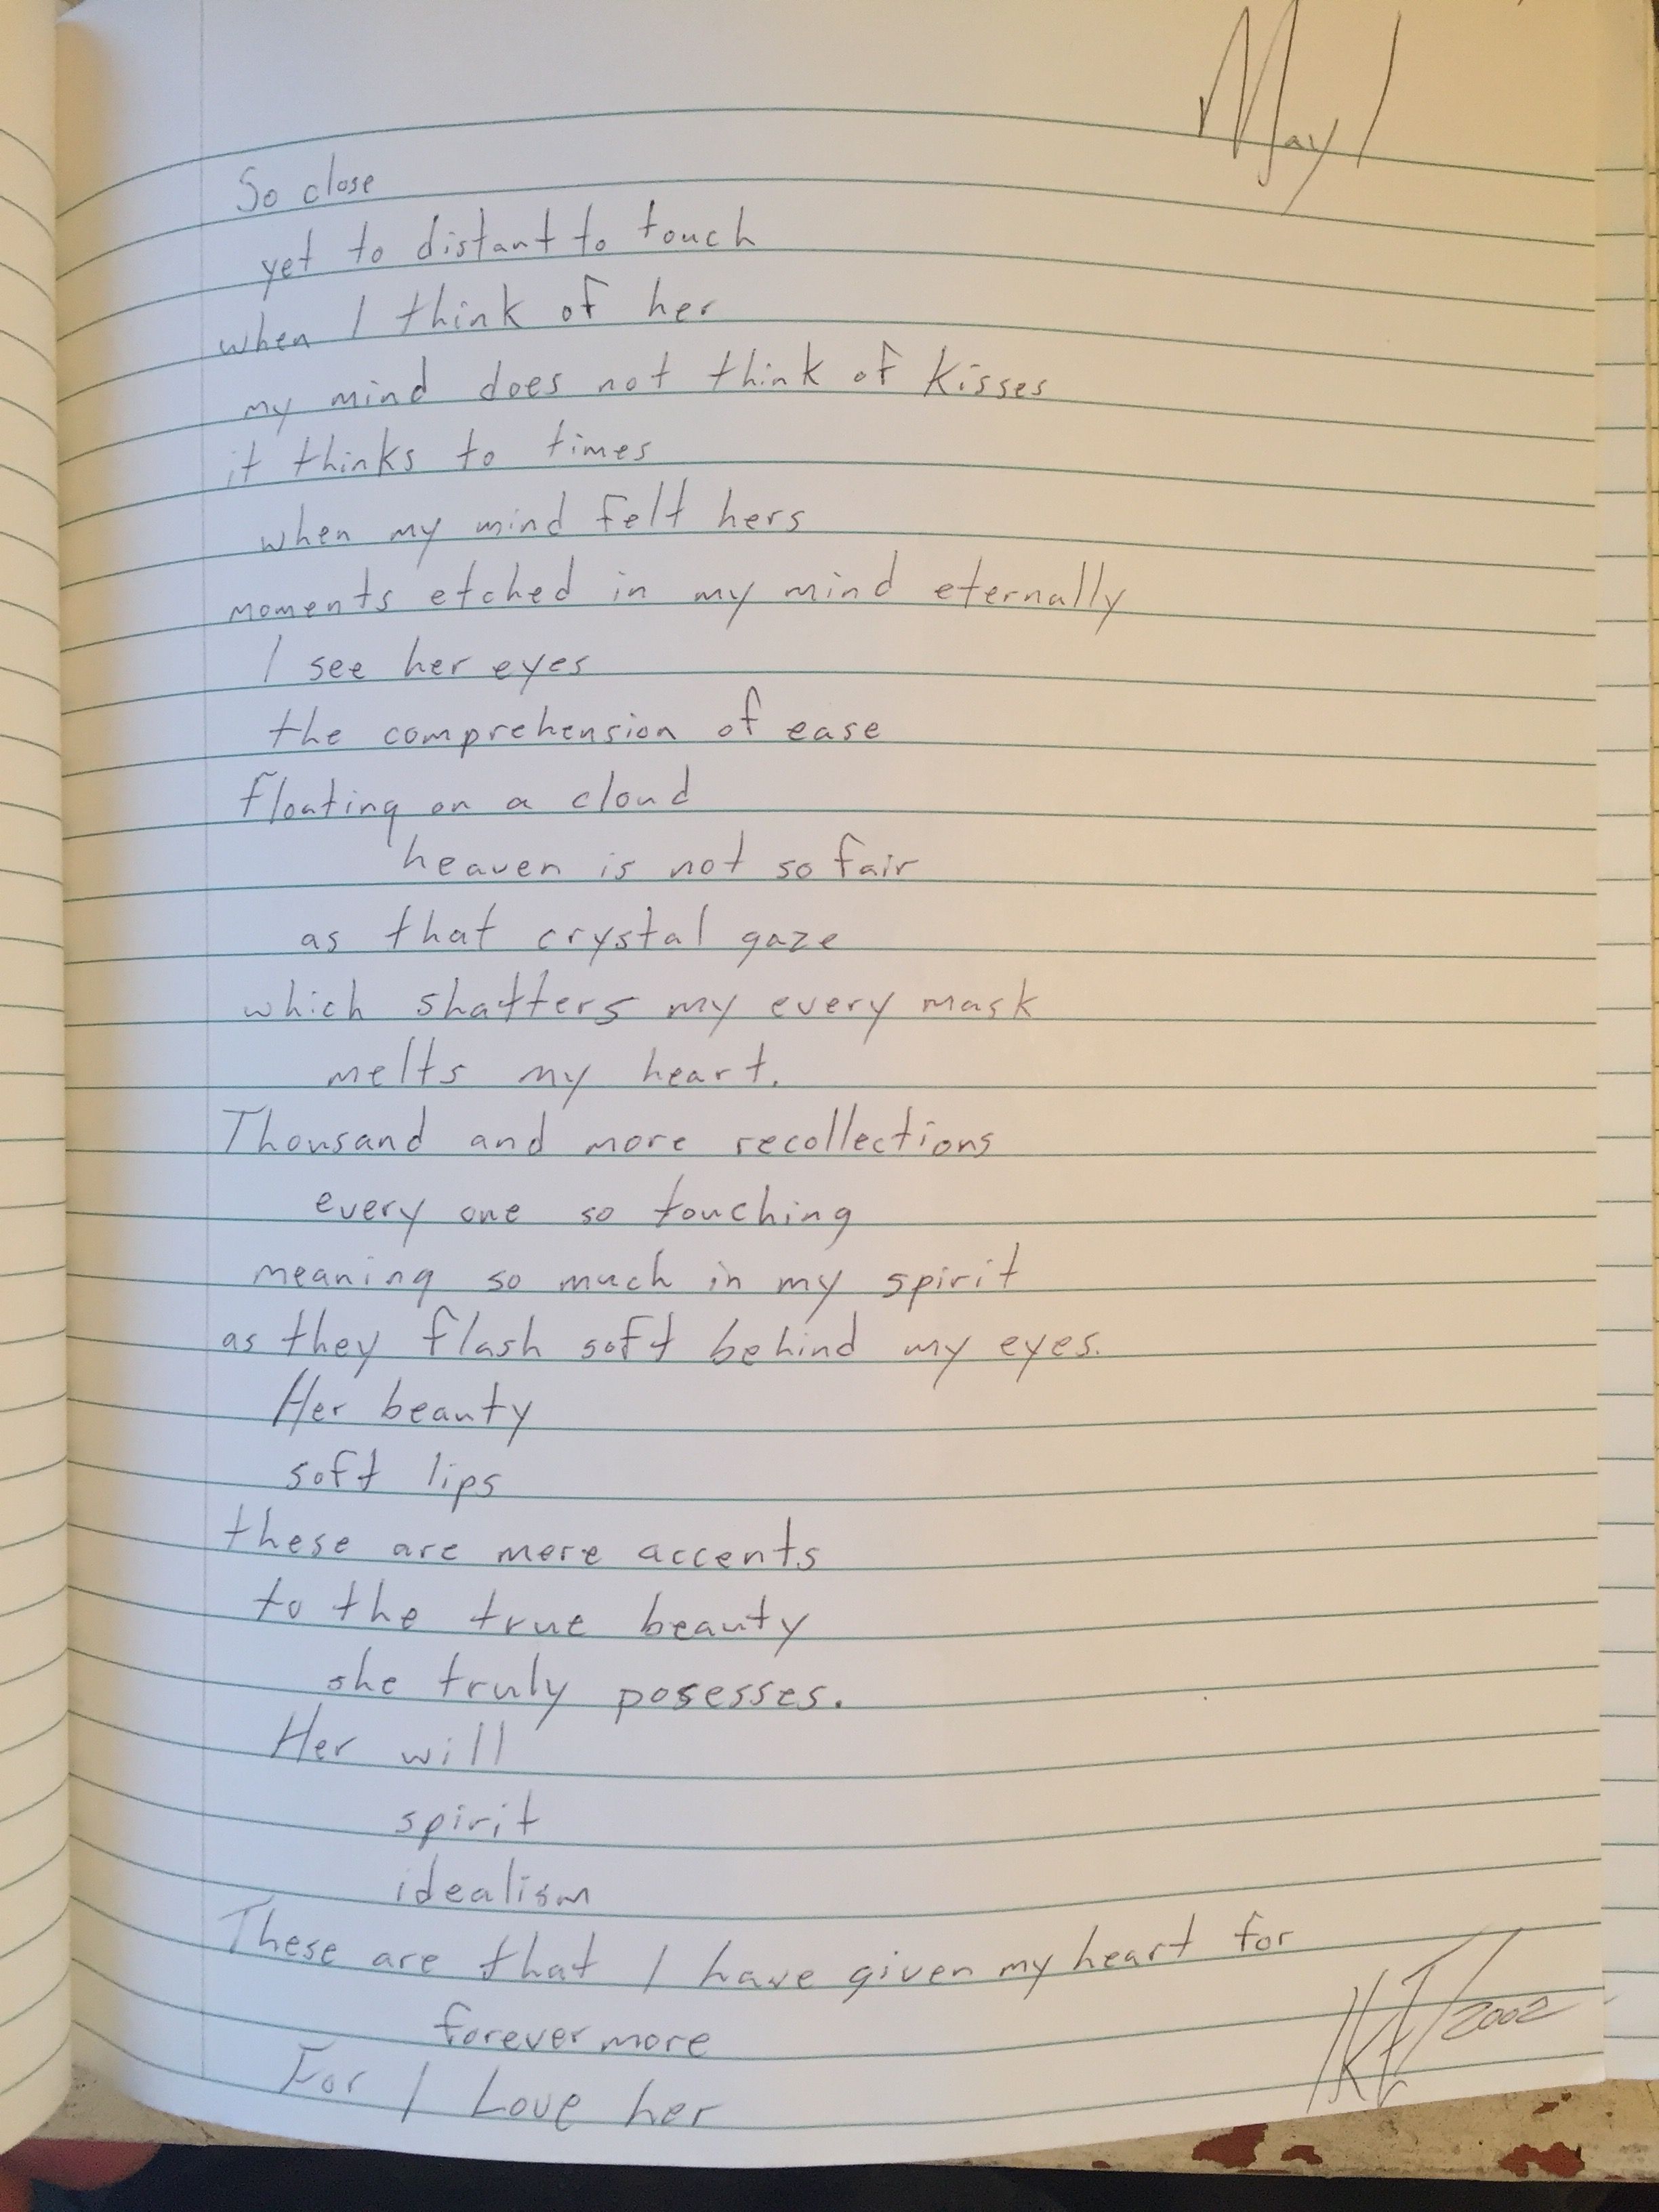 May 1
So close
yet to distant to touch
when I think of her
my mind does not think of kisses
it thinks to times
when my mind felt hers
moments etched in my mind eternally
I see her eyes
the comprehension of ease
floating on a cloud
heaven is not so fair
as that crystal gaze
which shatters my every mask
melts my heart.
Thousand and more recollections
every one so touching
meaning so much in my spirit
as they flash soft behind my eyes.
Her beauty
soft lips
these are mere accents
to the true beauty
she truly posesses.
Her will
spirit
idealism
These are that I have given my heart for
forever more
For I Love her
2002